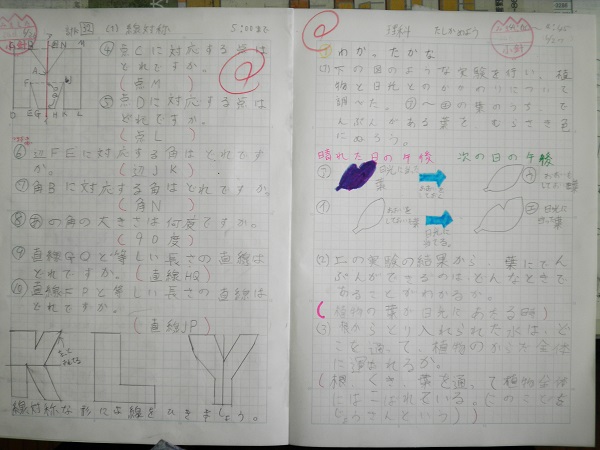 (1) 線対称
5:00まで
④ 点Cに対応する点は
どれですか。
(点M)
⑤ 点Dに対応する点は
どれですか。
(点L)
⑥ 辺FEに対応する角はどれです
か。(辺JK)
⑦ 角Bに対応する角はどれですか。
(角N)
⑧ あの角の大きさは何度ですか。
(90度)
⑨ 直線GQと等しい長さの直線は
どれですか。(直線HQ)
⑩ 直線FPと等しい長さの直線は
どれですか。
(直線JP)
線対称な形には線をひきましょう。
理科 たしかめよう
わか。たかな
(1) 下の図のような実験を行い、植
物と日光とのかかわりについて
調べた。⑦〜㋓の葉のうちで
んぷんがある葉をむらさき色
にぬろう。
晴れた日の午後 次の日の午後
日光に当てた葉
(2) 上の実験の結果から、葉にでん
ぷんができるのはどんなときで
あることがわかるか。
(植物の葉が日光にあたる時)
(3) 根からとり入れられた水は、ど
こを通って、植物のからだ全体
に運ばれるか。
(根、くき、葉を通って植物全体
にはこばれている。(このことを
じょうさんという))